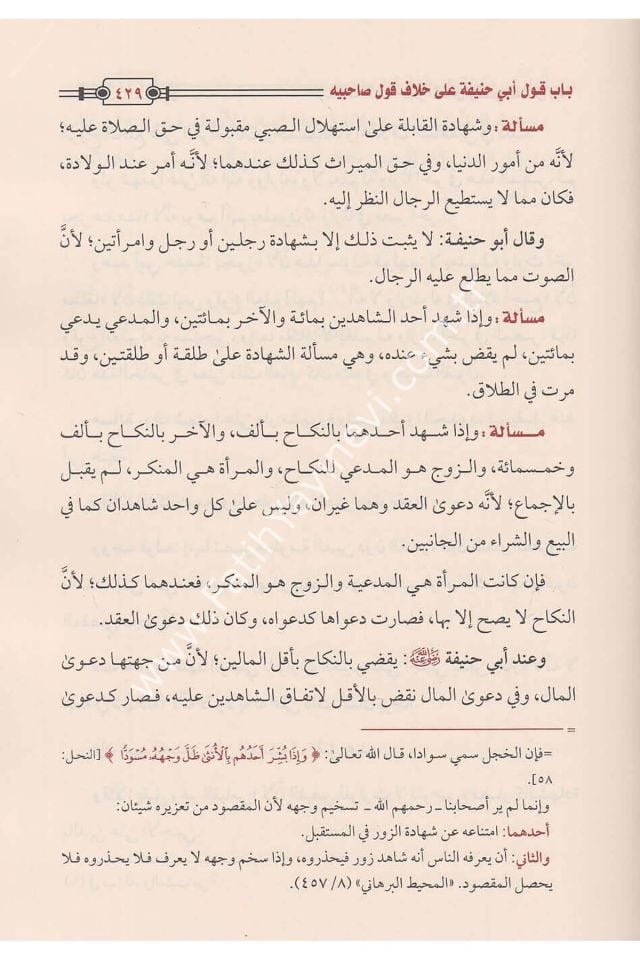 باب قول أبي حنيفة على خلاف قول صاحبيه
٤٢٩
مسألة: وشهادة القابلة علىٰ استهلال الصبي مقبولة في حق الصلاة عليه؛
لأنَّه من أمور الدنيا، وفي حق الميراث كذلك عندهما؛ لأنَّه أمر عند الولادة،
فكان مما لا يستطيع الرجال النظر إليه.
وقال أبو حنيفة: لا يثبت ذلك إلا بشهادة رجلين أو رجل وامرأتين؛ لأنَّ
الصوت مما يطلع عليه الرجال.
مسألة: وإذا شهد أحد الشاهدين بمائة والآخر بمائتين، والمدعي يدعي
بمائتين، لم يقض بشيء عنده، وهي مسألة الشهادة علىٰ طلقة أو طلقتين، وقد
مرت في الطلاق.
مسألة: وإذا شهد أحدهما بالنكاح بألف، والآخر بالنكاح بألف
وخمسمائة، والزوج هو المدعي للنكاح، والمرأة هي المنكر، لم يقبل
بالإجماع؛ لأنَّه دعوىٰ العقد وهما غيران، وليس علىٰ كل واحد شاهدان كما في
البيع والشراء من الجانبين.
فإن كانت المرأة هي المدعية والزوج هو المنكر، فعندهما كذلك؛ لأنَّ
النكاح لا يصح إلا بها، فصارت دعواها كدعواه، وكان ذلك دعوىٰ العقد.
وعند أبي حنيفة رضي الله عنه: يقضي بالنكاح بأقل المالين؛ لأنَّ من جهتها دعوىٰ
المال، وفي دعوىٰ المال نقض بالأقل لاتفاق الشاهدين عليه، فصار كدعوىٰ
=
=فإن الخجل سمي سوادا، قال الله تعالىٰ: ﴿وَإِذَا بُشِّرَ أَحَدُهُم بِالْأُنثَىٰ ظَلَّ وَجْهُهُ مُسْوَدًّا﴾ [النحل:
٥٨].
وإنما لم ير أصحابنا ـ رحمهم الله ـ تسخيم وجهه لأن المقصود من تعزيره شيئان:
أحدهما: امتناعه عن شهادة الزور في المستقبل.
والثاني: أن يعرفه الناس أنه شاهد زور فيحذروه، وإذا سخم وجهه لا يعرف فلا يحذروه فلا
يحصل المقصود. «المحيط البرهاني» (٨/ ٤٥٧).
www.fatihyayinevi.com.tr